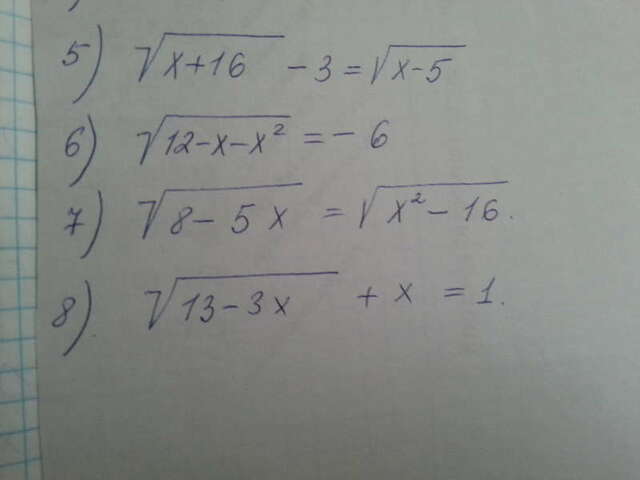 5) √(x+16) - 3 = √(x-5)
6) √(12-x-x²) = - 6
7) √(8-5x) = √(x²-16).
8) √(13-3x) + x = 1.